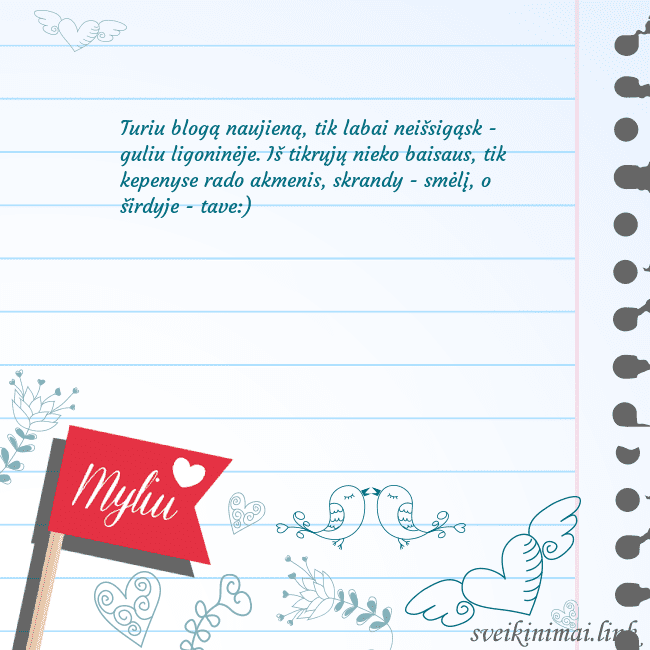 Turiu blogą naujieną, tik labai neišsigąsk -
guliu ligoninėje. Iš tikrųjų nieko baisaus, tik
kepenyse rado akmenis, skrandy - smėlį, o
širdyje - tave:)
Myliu
sveikinimai.link